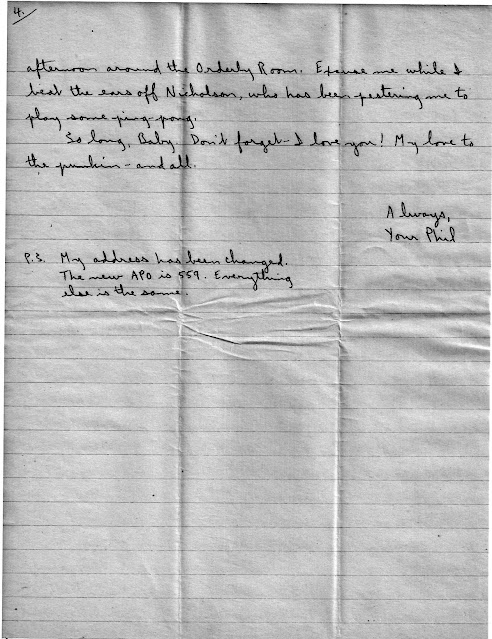 4.
afternoon around the Orderly Room. Excuse me while I
beat the ears off Nicholson, who has been pestering me to
play some ping-pong.
So long, Baby. Don't forget - I love you! My love to
the punkin - and all.
Always,
Your Phil
P.S. My address has been changed.
The new APO is 559. Everything
else is the same.